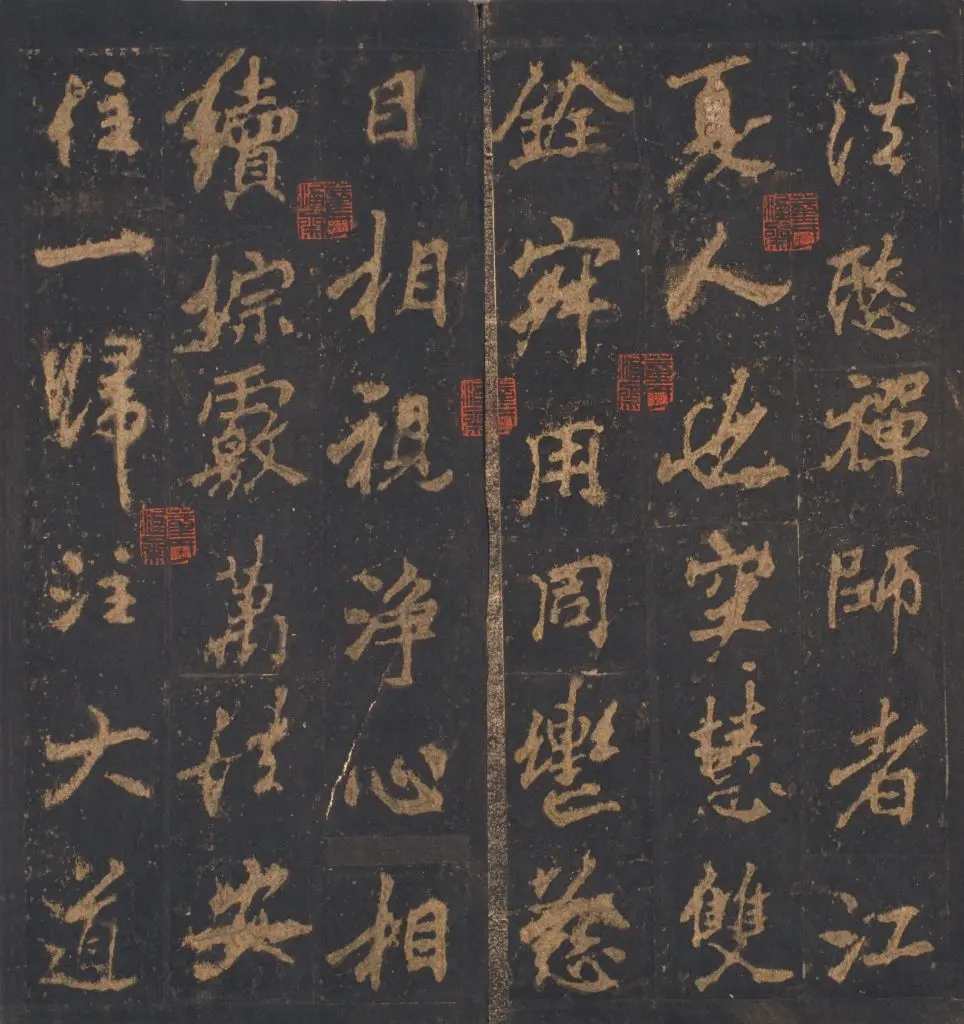 法愍禪師者江
夏人也空慧雙
銓寂用同轡慈
目相視淨心相
續綜覈萬法安
住一歸注大道